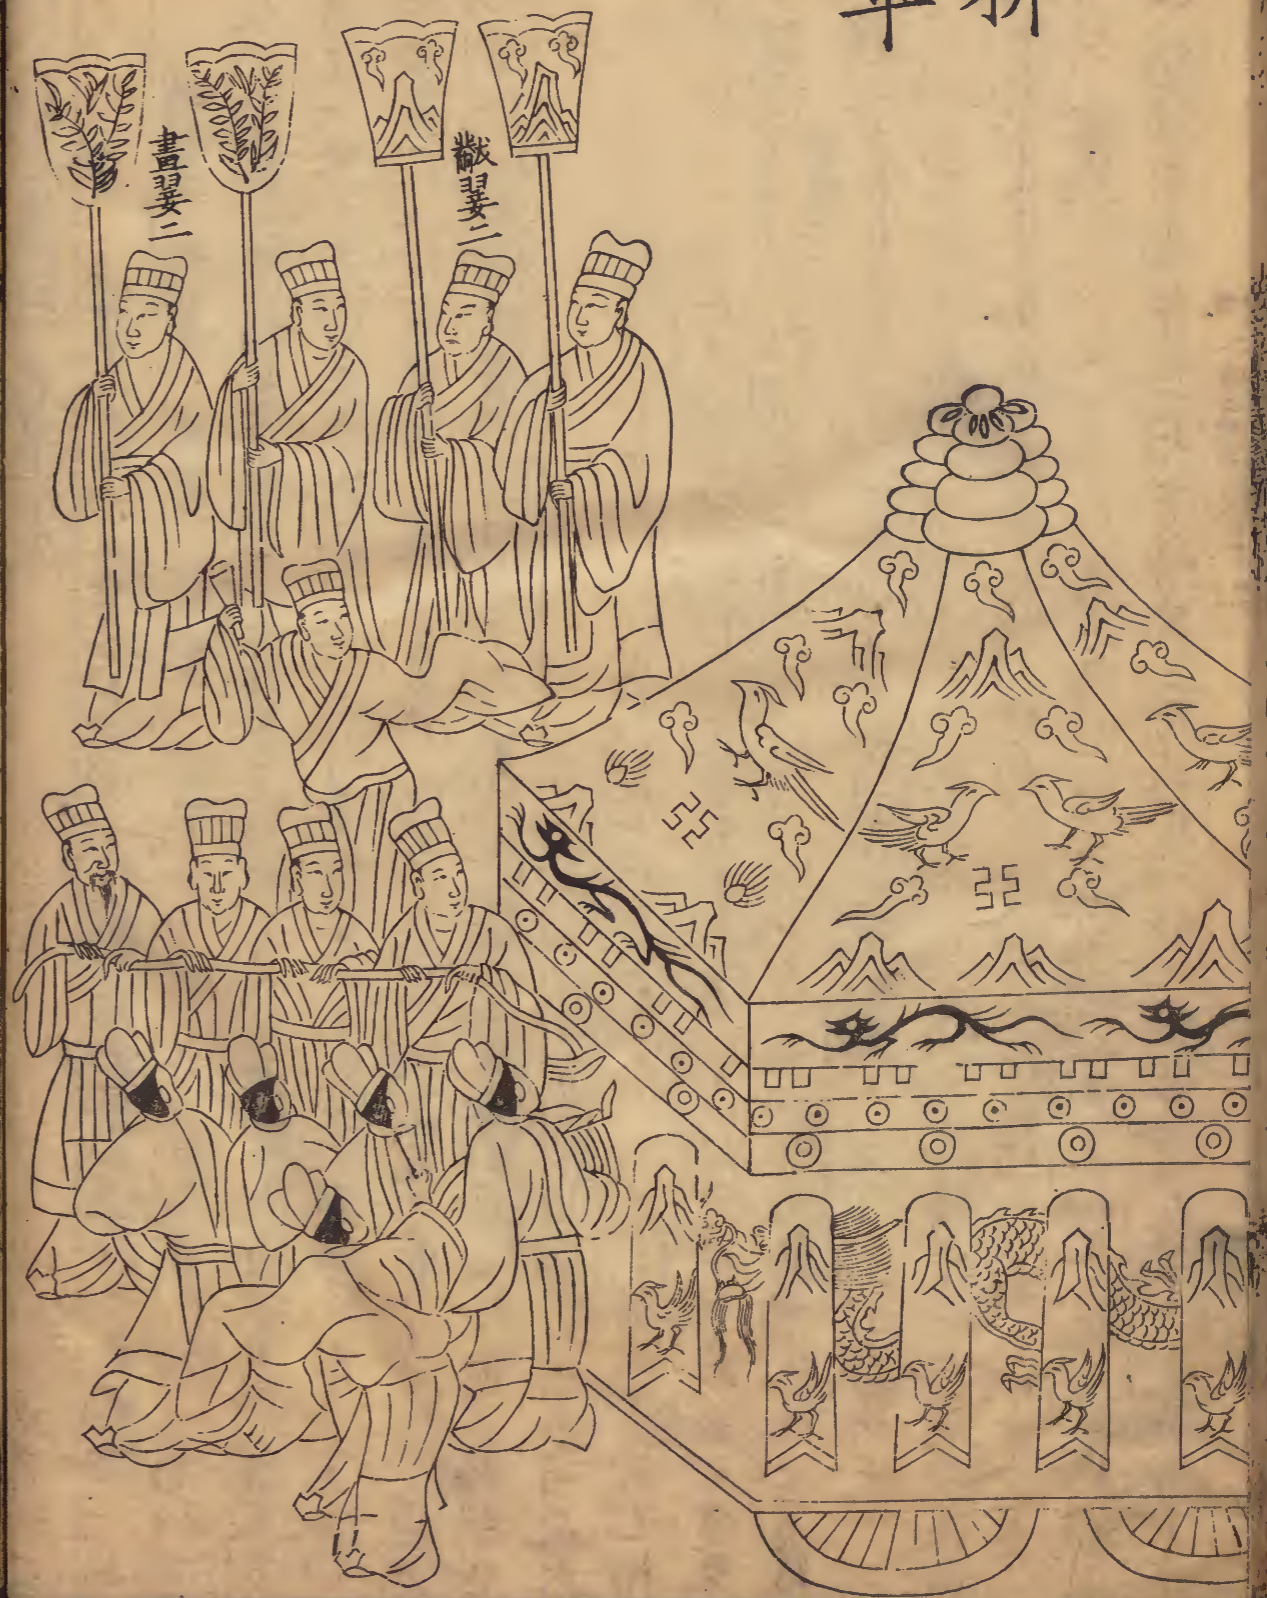 黻翣二
畫翣二